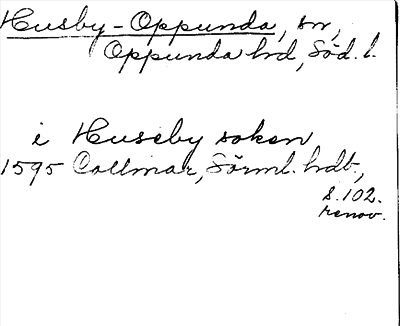 Husby-Oppunda, sn,
Oppunda hd, Söd. l.
i Huseby soken
1595 Collmar, Sörml. hdb.,
s. 102.
renov.